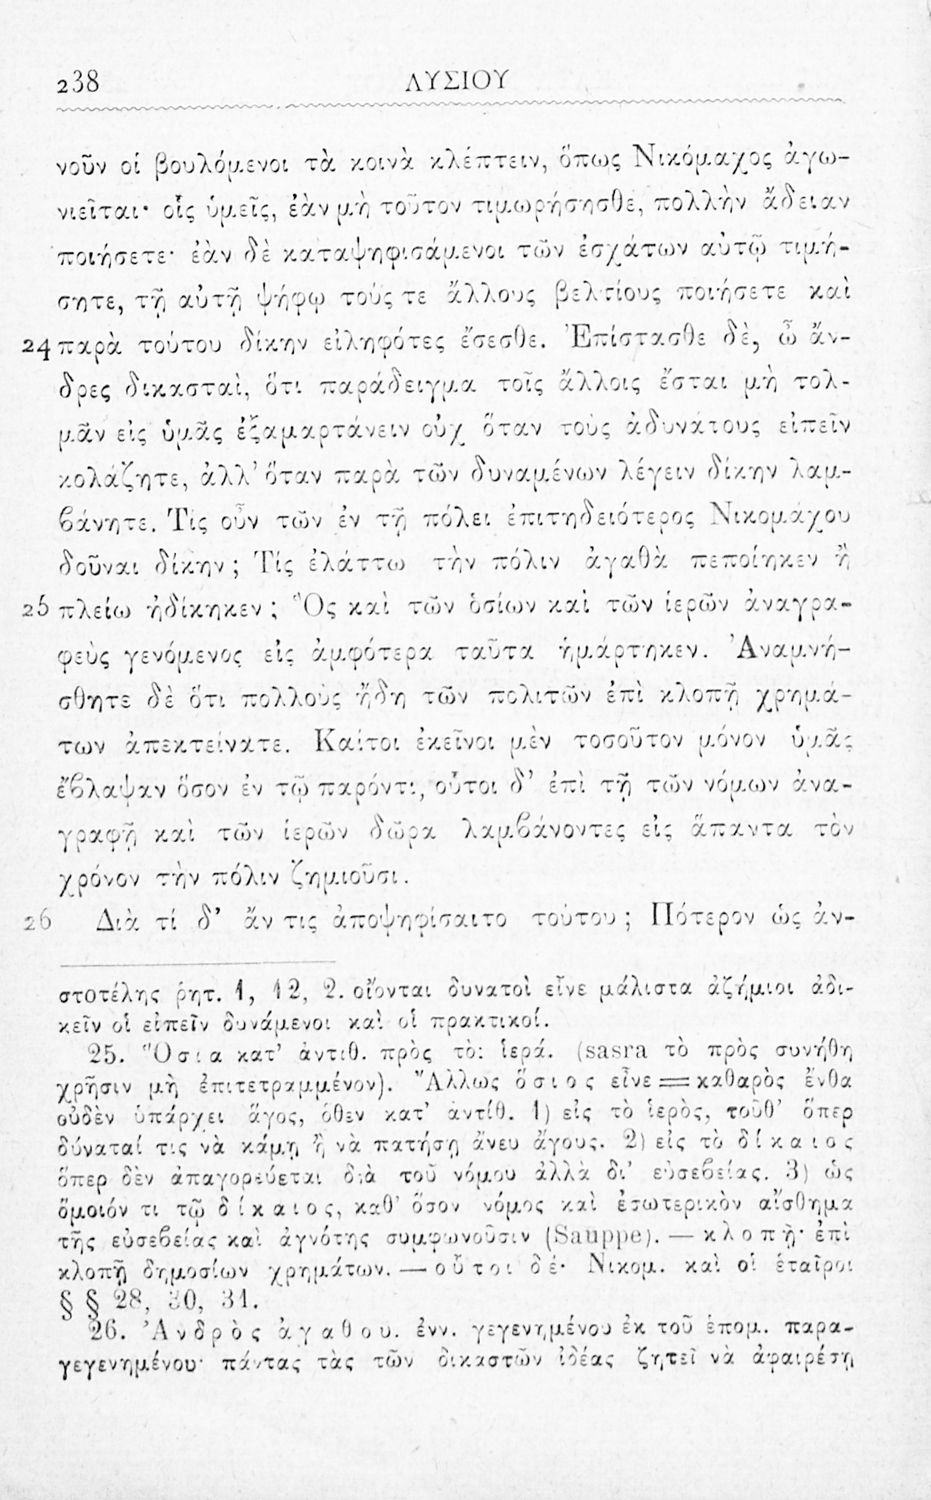 238 ΛΥΣΙΟΥ
νοῦν οἱ βουλόμενοι τὰ κοινὰ κλέπτειν, ὅπως Νικόμαχος ἀγω-
νιεῖται· οἷς ὑμεῖς, ἐὰν μὴ τοῦτον τιμωρήσησθε, πολλὴν ἄδειαν
ποιήσετε· ἐὰν δὲ καταψηφισάμενοι τῶν ἐσχάτων αὐτῷ τιμή-
σητε, τῇ αὐτῇ ψήφῳ τούς τε ἄλλους βελτίους ποιήσετε καὶ
24 παρὰ τούτου δίκην εἰληφότες ἔσεσθε. Ἐπίστασθε δὲ, ὦ ἄν-
δρες δικασταὶ, ὅτι παράδειγμα τοῖς ἄλλοις ἔσται μὴ τολ-
μᾶν εἰς ὑμᾶς ἐξαμαρτάνειν οὐχ ὅταν τοὺς ἀδυνάτους εἰπεῖν
κολάζητε, ἀλλ’ ὅταν παρὰ τῶν δυναμένων λέγειν δίκην λαμ-
ϐάνητε. Τίς οὖν τῶν ἐν τῇ πόλει ἐπιτηδειότερος Νικομάχου
δοῦναι δίκην; Τίς ἐλάττω τὴν πόλιν ἀγαθὰ πεποίηκεν ἢ
25 πλείω ἠδίκηκεν; Ὃς καὶ τῶν ὁσίων καὶ τῶν ἱερῶν ἀναγρα-
φεὺς γενόμενος εἰς ἀμφότερα ταῦτα ἡμάρτηκεν. Ἀναμνή-
σθητε δὲ ὅτι πολλοὺς ἤδη τῶν πολιτῶν ἐπὶ κλοπῇ χρημά-
των ἀπεκτείνατε. Καίτοι ἐκεῖνοι μὲν τοσοῦτον μόνον ὑμᾶς
ἔϐλαψαν ὅσον ἐν τῷ παρόντι, οὗτοι δ’ ἐπὶ τῇ τῶν νόμων ἀνα-
γραφῇ καὶ τῶν ἱερῶν δῶρα λαμϐάνοντες εἰς ἅπαντα τὸν
χρόνον τὴν πόλιν ζημιοῦσι.
26 Διὰ τί δ’ ἄν τις ἀποψηφίσαιτο τούτου; Πότερον ὡς ἀν-
στοτέλης ῥητ. 1, 12, 2. οἴονται δυνατοὶ εἶνε μάλιστα ἀζήμιοι ἀδι-
κεῖν οἱ εἰπεῖν δυνάμενοι καὶ οἱ πρακτικοί.
25. Ὅσια κατ’ ἀντιθ. πρὸς τὸ: ἱερά. (sasra τὸ πρὸς συνήθη
χρῆσιν μὴ ἐπιτετραμμένον). Ἄλλως ὅσιος εἶνε = καθαρὸς ἔνθα
οὐδὲν ὑπάρχει ἅγος, ὅθεν κατ’ ἀντίθ. 1) εἰς τὸ ἱερὸς, τοῦθ’ ὅπερ
δύναταί τις νὰ κάμῃ ἢ νὰ πατήσῃ ἄνευ ἄγους. 2) εἰς τὸ δίκαιος
ὅπερ δὲν ἀπαγορεύεται διὰ τοῦ νόμου ἀλλὰ δι’ εὐσεϐείας. 3) ὡς
ὅμοιόν τι τῷ δίκαιος, καθ’ ὅσον νόμος καὶ ἐσωτερικὸν αἴσθημα
τῆς εὐσεϐείας καὶ ἁγνότης συμφωνοῦσιν (Sauppe). — κλοπῇ· ἐπὶ
κλοπῇ δημοσίων χρημάτων. — οὗτοι δέ· Νικομ. καὶ οἱ ἑταῖροι
§ § 28, 30, 31.
26. Ἀνδρὸς ἀγαθου. ἐνν. γεγενημένου ἐκ τοῦ ἑπομ. παρα-
γεγενημένου· πάντας τὰς τῶν δικαστῶν ἰδέας ζητεῖ νὰ ἀφαιρέσῃ